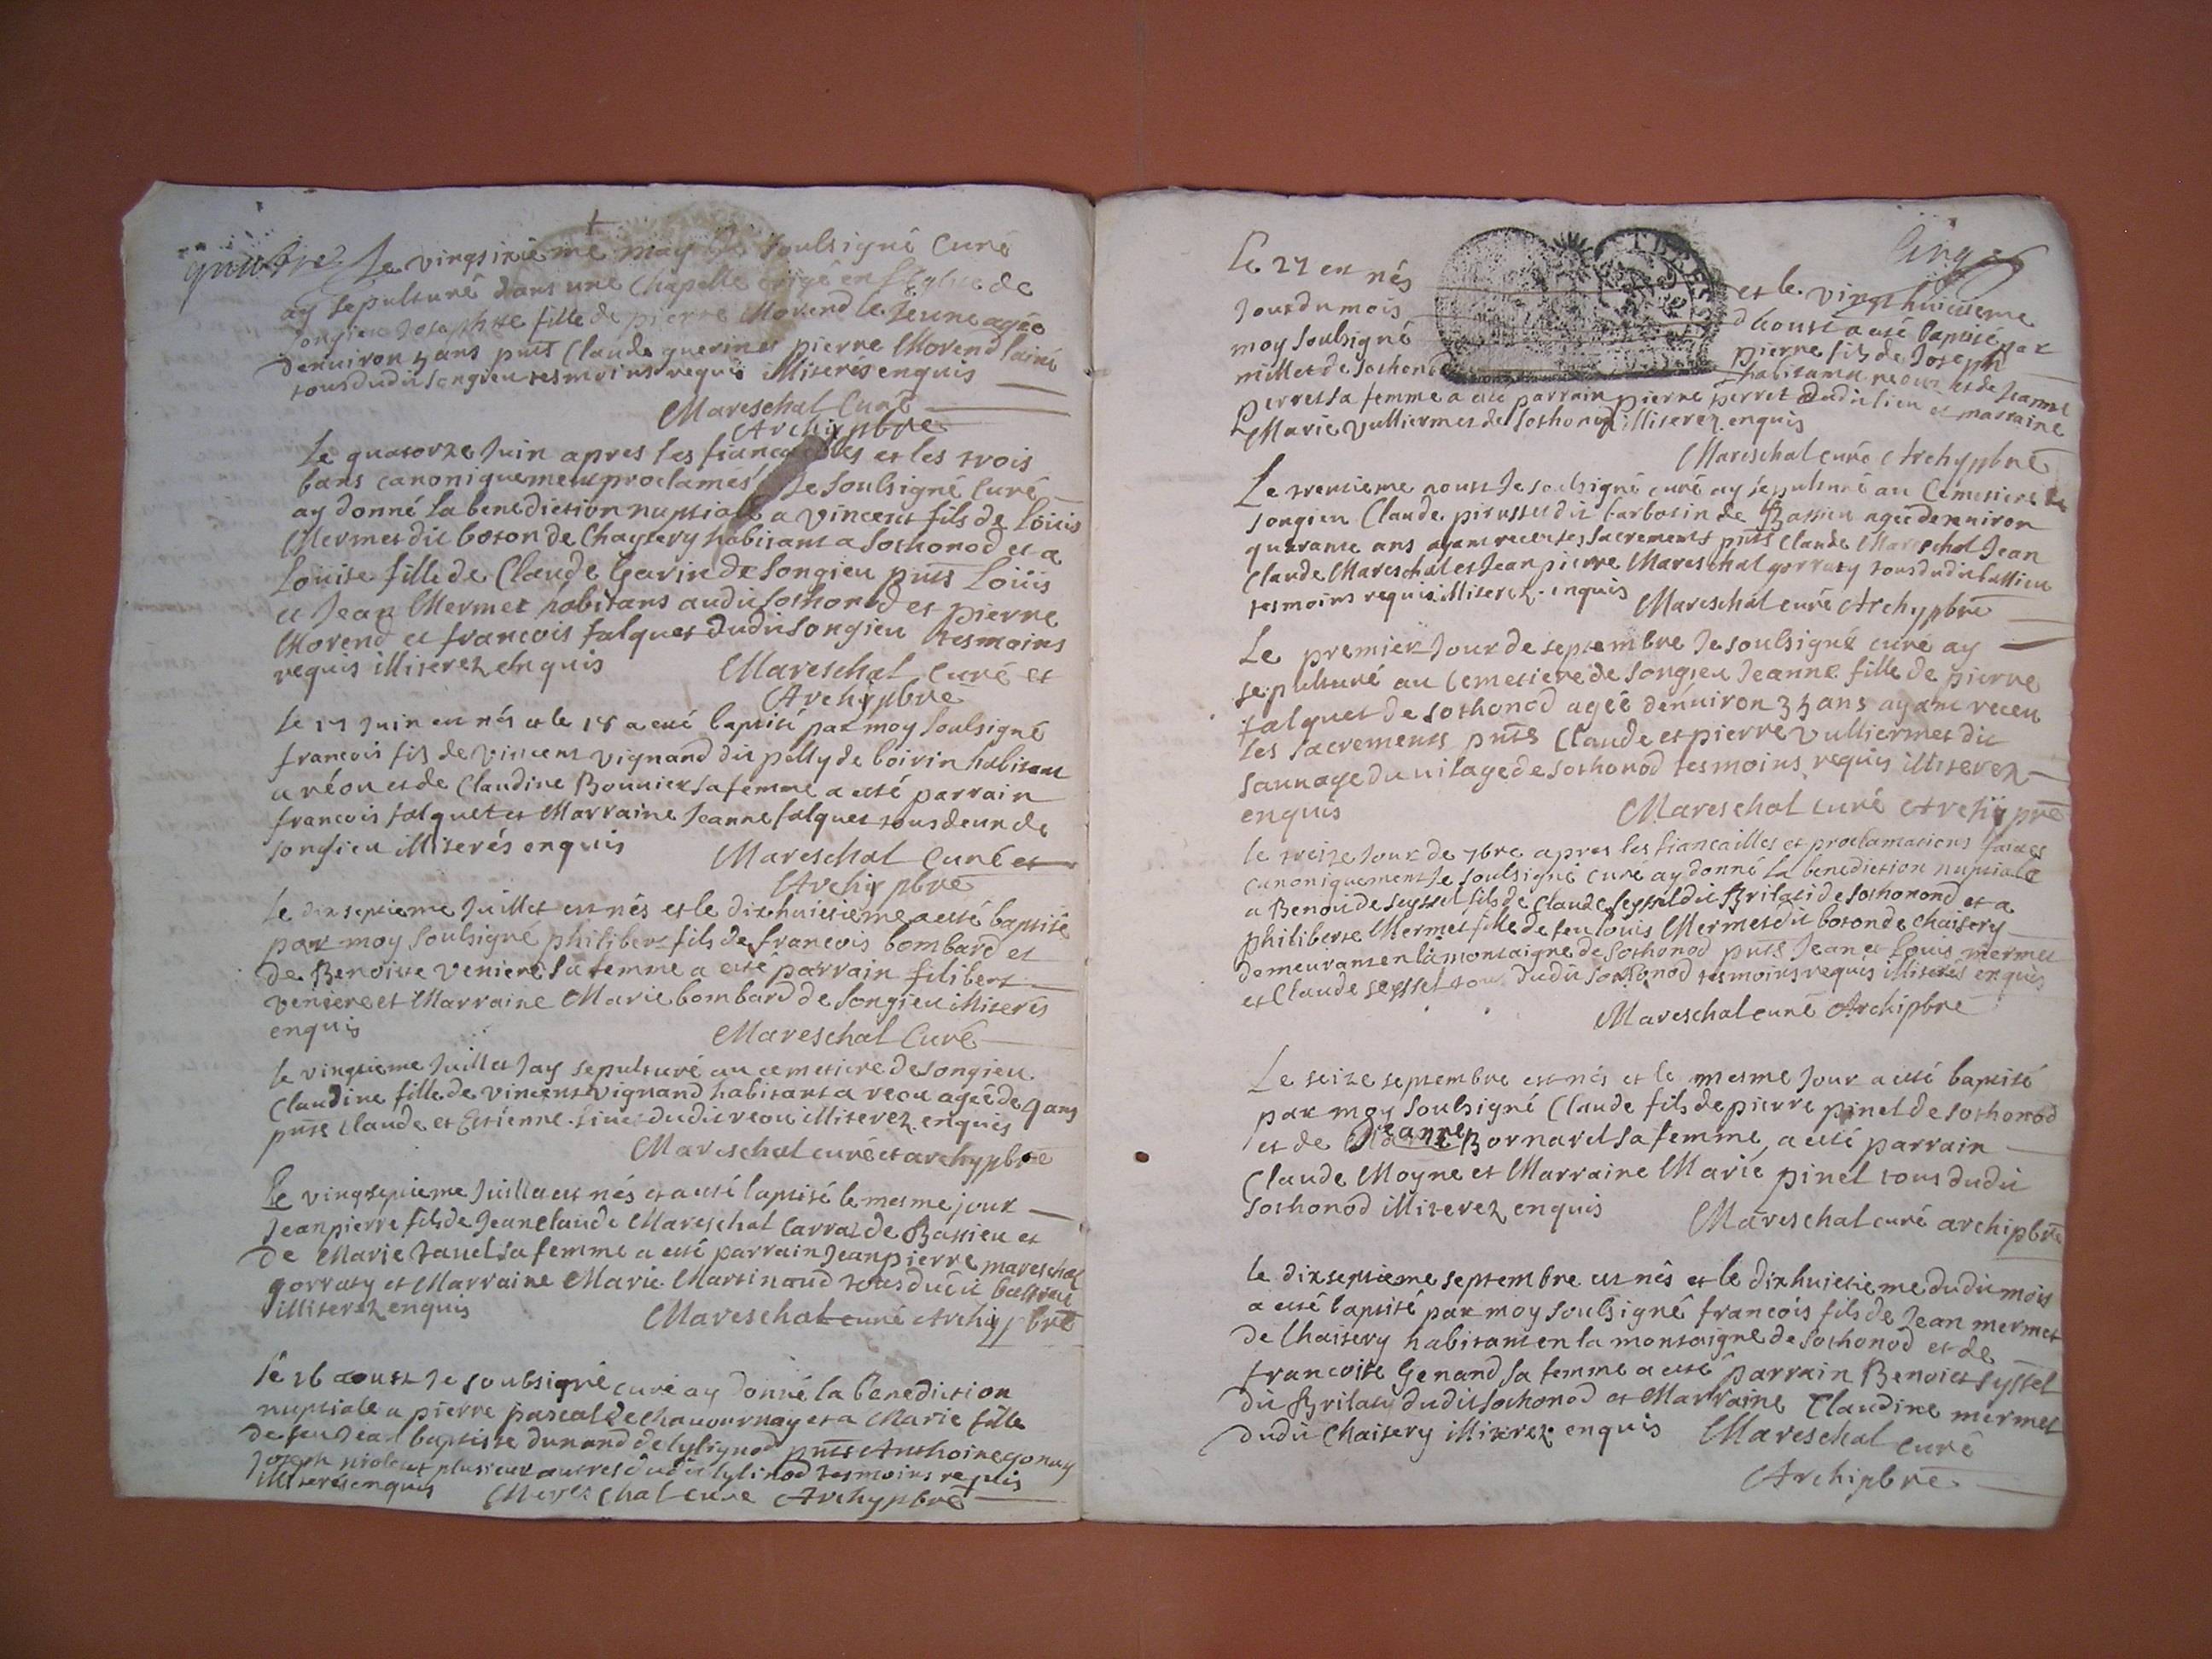 quatre
Le vingsixieme may Je soulsigné Curé
ay sepulturé dans une Chapelle erigé en l'Eglise de
songieu Josephte fille de pierre Morend le Jeune agée
denuiron 5 ans pnts Claude guerinet pierre Morend lainé
tous dudit songieu tesmoins requis illiterés enquis
Mareschal Curé
Archipbre
Le quatorze Juin apres les fiancailles et les trois
bans canoniquement proclamés Je soulsigné Curé
ay donné la benediction nuptiale a vincent fils de Loüis
Mermet dit boton de Chaytery habitant a sothonod et a
Louise fille de Claude Gavin de songieu pnts Loüis
et Jean Mermet habitans audit sothonod et pierre
Morend et francois falquet dudit songieu tesmoins
requis illiterez enquis Mareschal Curé et
Archipbre
le 17 Juin est nés et le 18 a esté baptisé par moy soulsigné
francois fils de vincent vignand dit polly de boirin habitant
a réou et de Claudine Bonnier sa femme a esté parrain
francois falquet et Marraine Jeanne falquet tous deux de
songieu illiterés enquis Mareschal Curé et
Archipbre
le dixseptieme Juillet est nés et le dixhuictieme a esté baptisé
par moy soulsigné philibert fils de francois bombard et
de Benoitte veniere sa femme a esté parrain filibert
veniere et Marraine Marie bombard de songieu illiterés
enquis Mareschal Curé
le vingtieme Juillet Jay sepulturé au cemetiere de songieu
Claudine fille de vincent vignand habitant a reou ageé de 4 ans
pnts Claude et Estienne dudit reou illiterez enquis
Mareschal curé et archypbre
Le vingseptieme Juillet est nés et a esté baptisé le mesme jour
Jeanpierre fils de Jeanclaude Mareschal Carraz de Bassieu et
de Marie Javel sa femme a esté parrain Jeanpierre mareschal
gorraty et Marraine Marie Martinand tous dudit bassieu
illiterez enquis Mareschal curé Archypbre
le 26 aoust Je soubsigné curé ay donné la benediction
nuptiale a pierre pascal de Chavornay et a Marie fille
de feu Jean baptiste dunand de lylignod pnts Anthoine gonay
Joseph niolet et plusieur autres dudit lylinod tesmoins requis
illiterés enquis Mareschal cure Archypbre
Cinq
Le 27 est nés et le vingt huictieme
Jour du mois d'Aoust a esté baptisé par
moy soulsigné pierre fils de Joseph
millet de sothonod habitant a reou et de Jeanne
perret sa femme a esté parrain pierre perret dudit lieu et marraine
Marie vulliermet de sothonod illiterez enquis
Mareschal curé Archypbre
Le trentieme aoust Je soulsigné curé ay sepulturé au Cemetiere de
songieu Claude dit barbotin de Bassieu agée denuiron
quarante ans ayant receu ses sacrements pnts Claude Mareschal Jean
Claude Mareschal et Jeanpierre Mareschal gorraty tous dudit bassieu
tesmoins requis illiterez enquis Mareschal curé Archypbre
Le premier Jour de septembre Je soulsigné curé ay
sepulturé au Cemetiere de songieu Jeanne fille de pierre
falquet de sothonod agée denuiron 35 ans ayant receu
les sacrements pnts Claude et pierre vulliermet dit
sauvage du vilage de sothonod tesmoins requis illiterez
enquis Mareschal curé Archypre
le treize Jour de 7bre apres les fiancailles et proclamations faites
canoniquement Je soulsigné curé ay donné la benediction nuptiale
a Benoit de seyssel fils de Claude seyssel dit Brilati de sothonond et a
philiberte Mermet fille de feu louis Mermet dit boton de Chaisery
demeurant en la montaigne de sothonod pnts Jean et louis mermet
et Claude seyssel tous dudit sothonod tesmoins requis illiterés enquis
Mareschal curé Archipbre
Le seize septembre est nés et le mesme Jour a esté baptisé
par moy soulsigné Claude fils de pierre pinel de sothonod
et de Jeanne Bornarel sa femme, a esté parrain
Claude Moyne et Marraine Marie pinel tous dudit
sothonod illiterez enquis Mareschal curé archipbre
le dixseptieme septembre est nés et le dixhuictieme dudit mois
a esté baptisé par moy soulsigné francois fils de Jean mermet
de Chaisery habitant en la montaigne de sothonod et de
francoise Genand sa femme a esté parrain Benoict syssel
dit Brilati dudit sothonod et Marraine Claudine mermet
dudit Chaisery illiterez enquis Mareschal curé
Archipbre